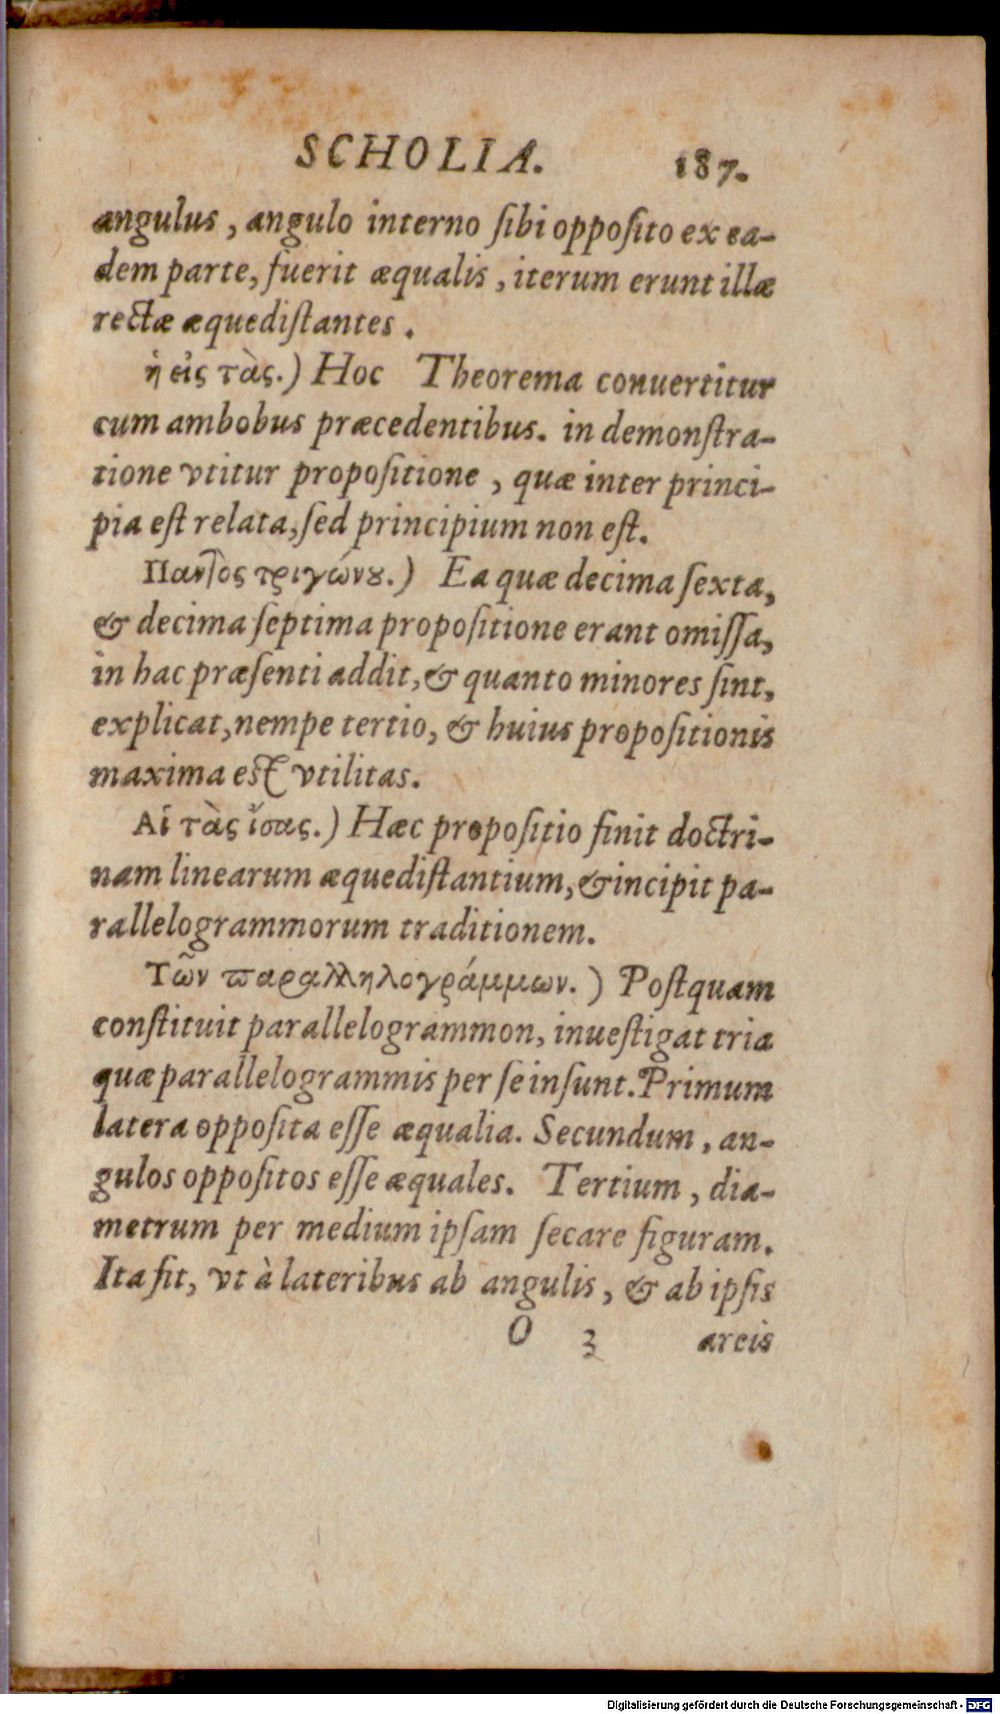 SCHOLIA. 187.
angulus, angulo interno ſibi oppoſito ex ea-
dem parte, fuerit æqualis, iterum erunt illæ
rectæ æquediſtantes.
ἡ εἰς τὰς.) Hoc Theorema conuertitur
cum ambobus præcedentibus. in demonſtra-
tione vtitur propoſitione, quæ inter princi-
pia eſt relata, ſed principium non eſt.
Παντὸς τριγώνȣ.) Ea quæ decima ſexta,
& decima ſeptima propoſitione erant omiſſa,
in hac præſenti addit, & quanto minores ſint,
explicat, nempe tertio, & huius propoſitionis
maxima eſt vtilitas.
Αἱ τὰς ἴσας.) Hæc propoſitio finit doctri-
nam linearum æquediſtantium, & incipit pa-
rallelogrammorum traditionem.
Τῶν παραλληλογράμμων.) Poſtquam
conſtituit parallelogrammon, inueſtigat tria
quæ parallelogrammis per ſe inſunt. Primum
latera oppoſita eſſe æqualia. Secundum, an-
gulos oppoſitos eſſe æquales. Tertium, dia-
metrum per medium ipſam ſecare figuram.
Ita fit, vt à lateribus ab angulis, & ab ipſis
O 3 areis
Digitalisierung gefördert durch die Deutsche Forschungsgemeinschaft - DFG